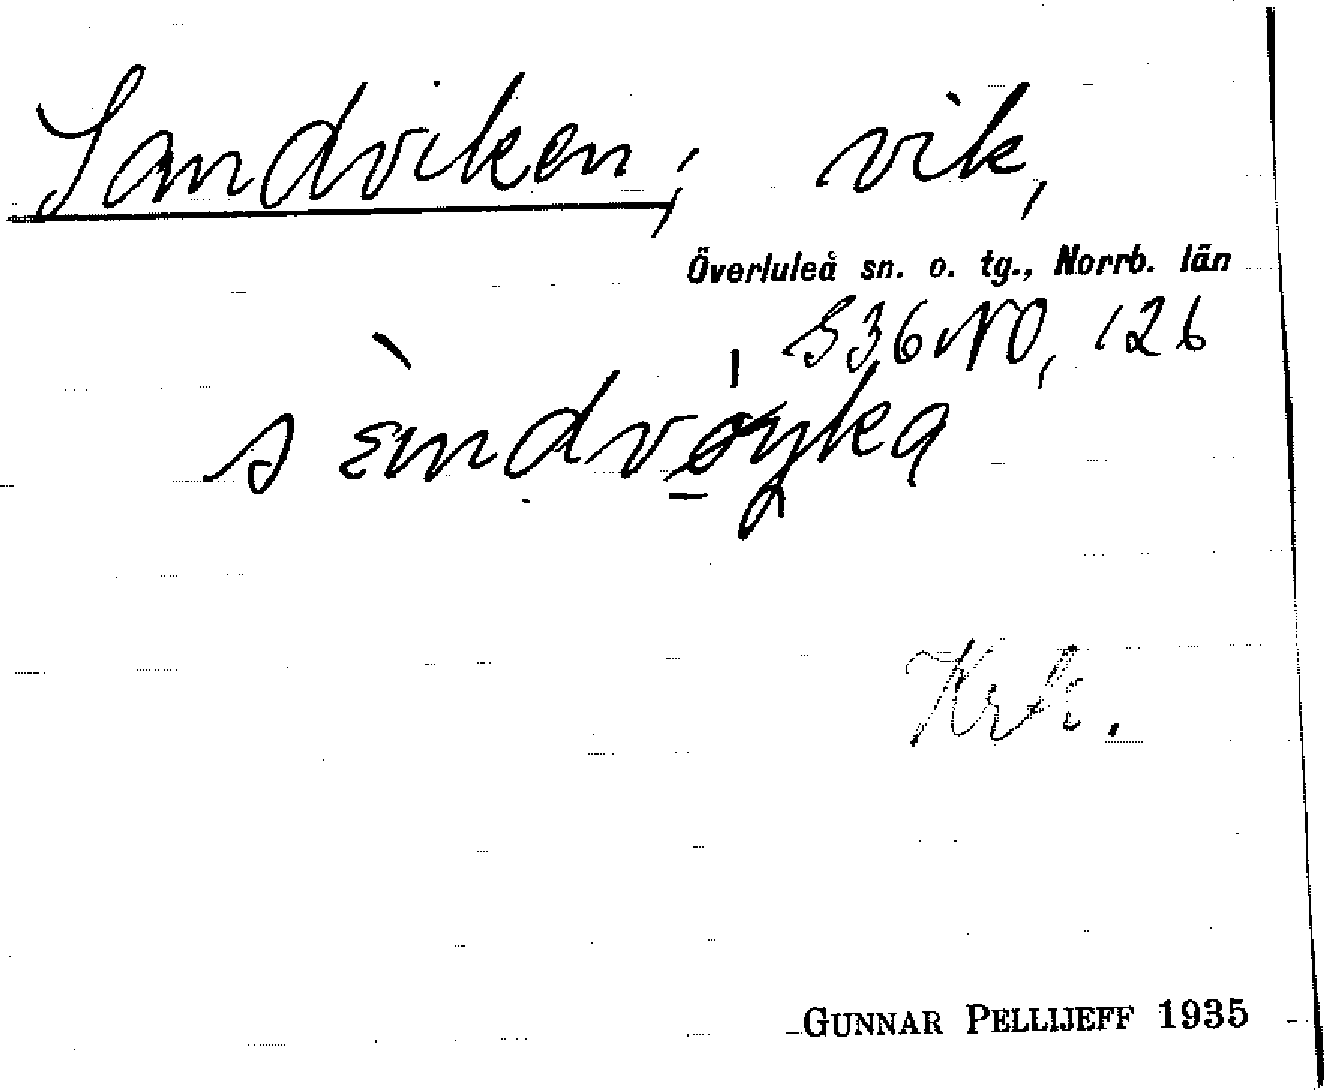 Sandviken, vik,
Överluleå sn. o. tg., Norrb. län
S36NO, 126
Krk.
GUNNAR PELLIJEFF 1935